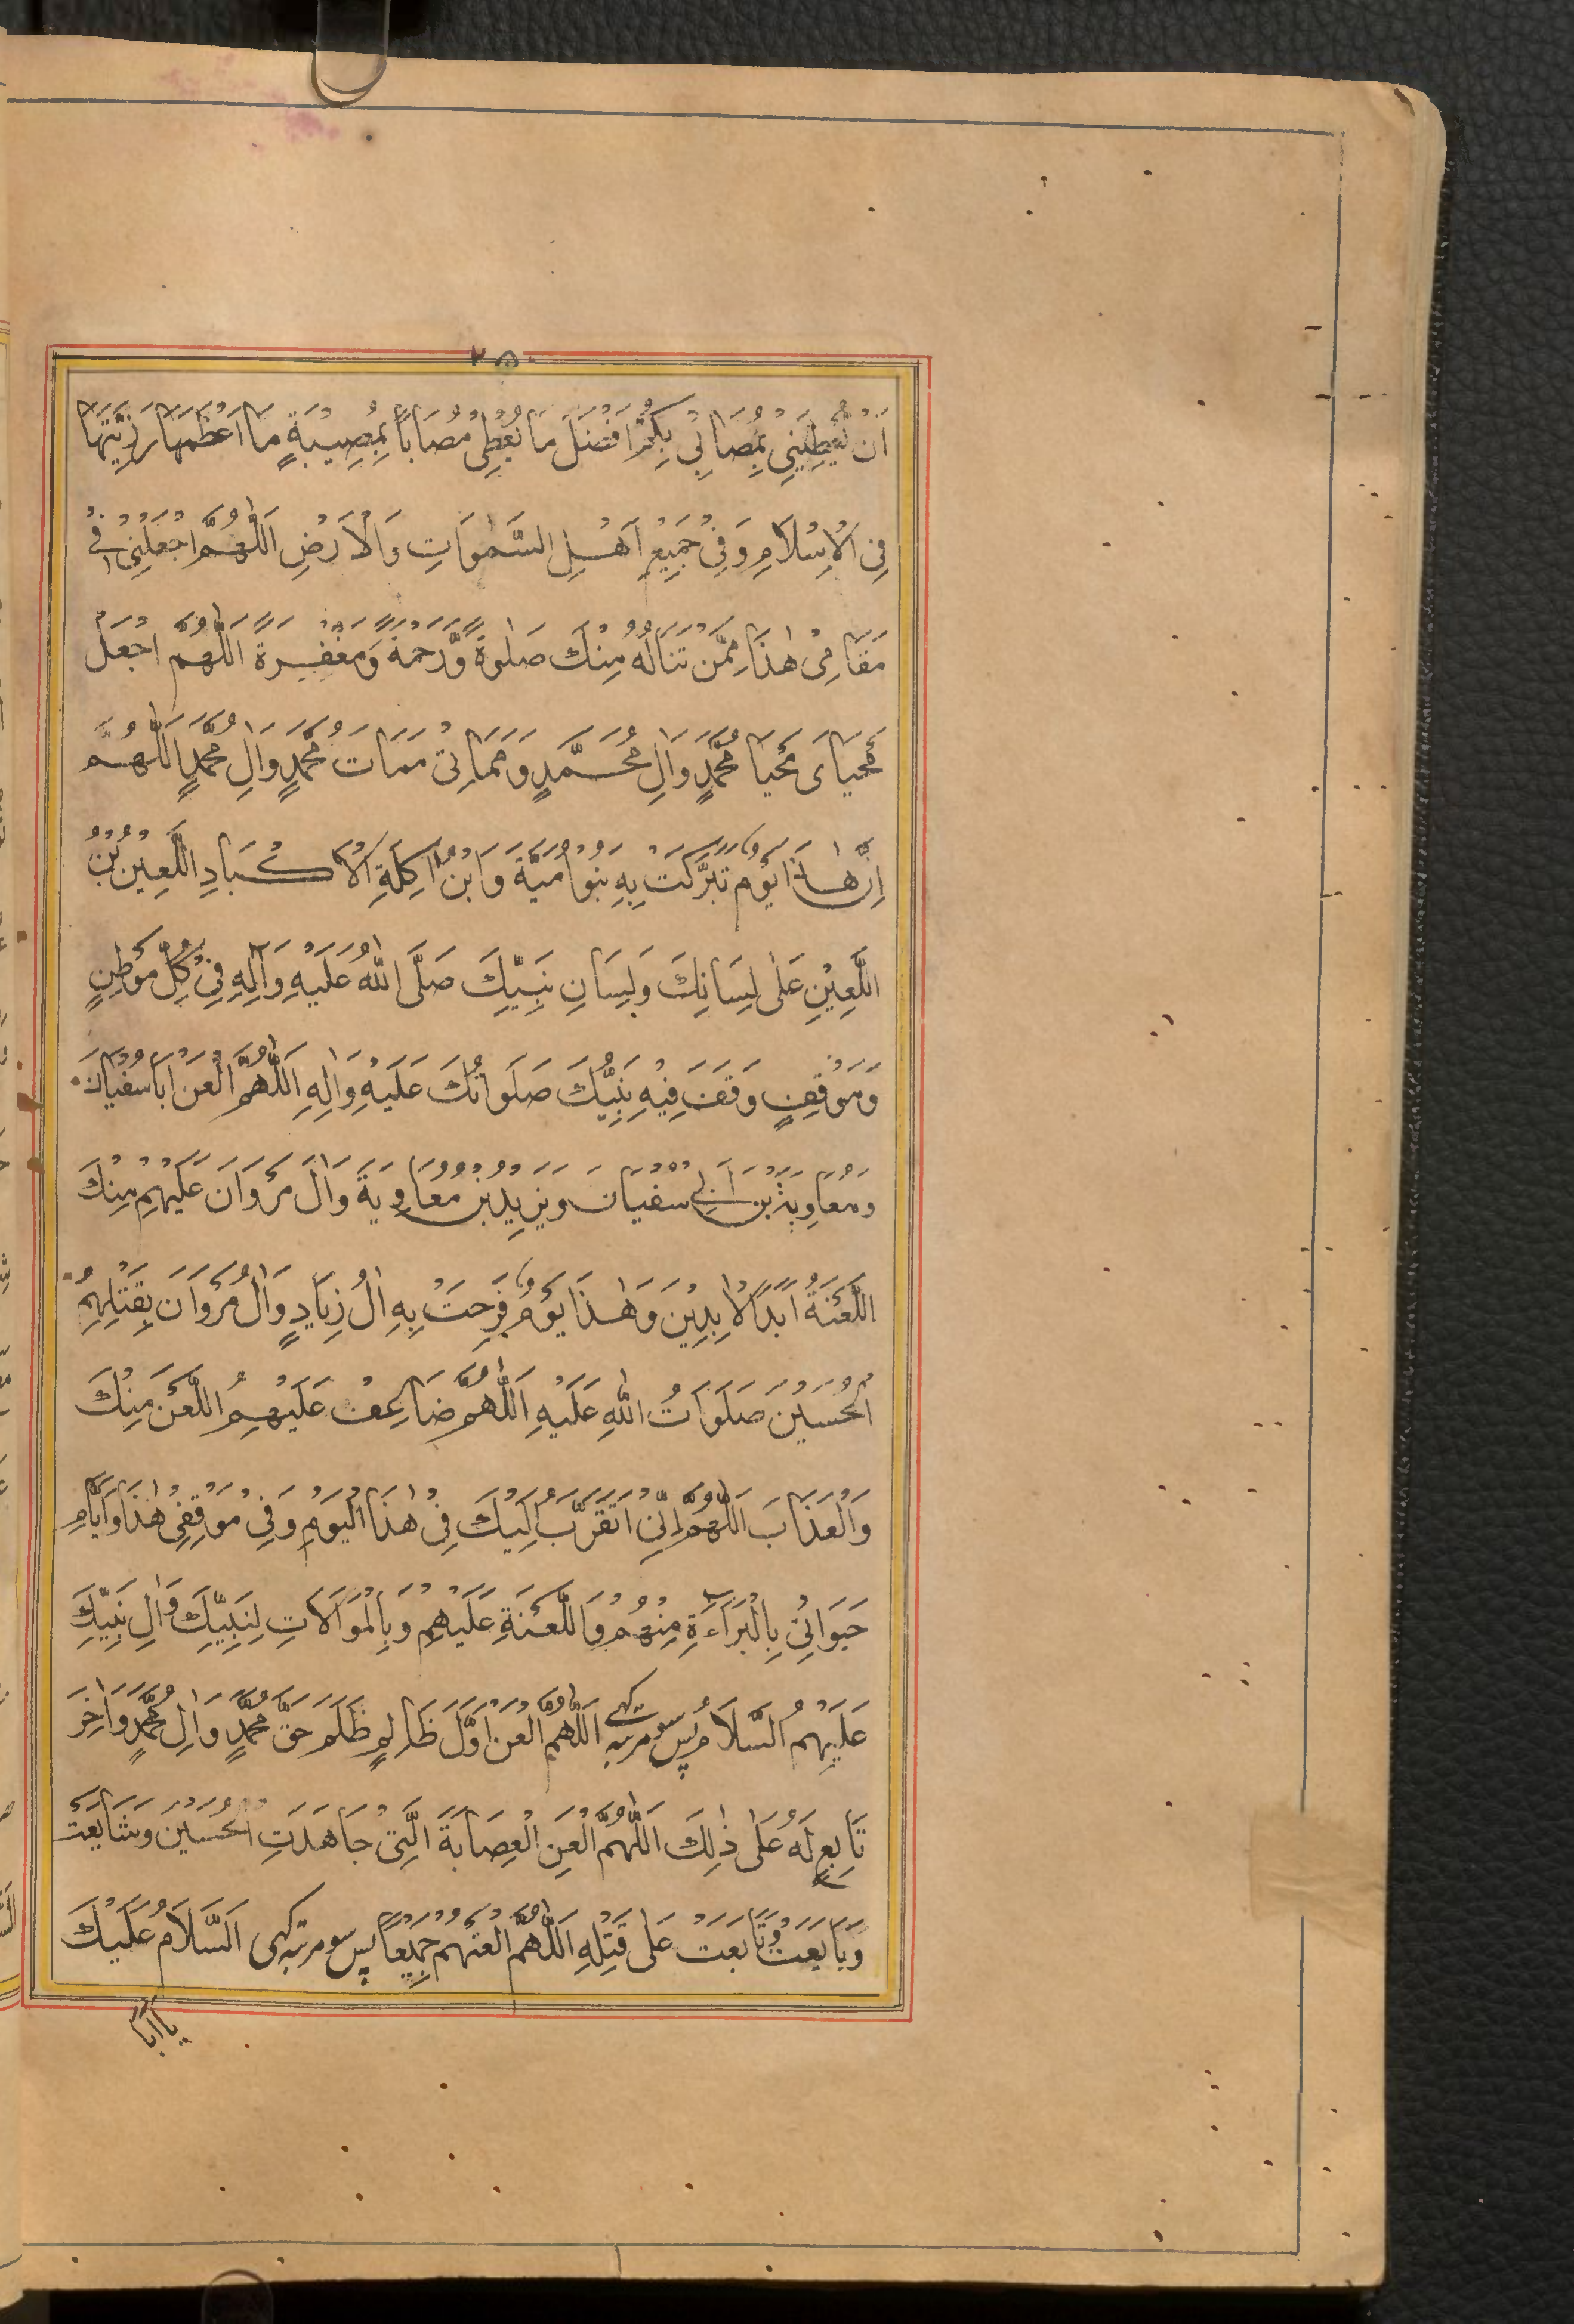 ۲۵۰
اَنْ يُّعْطِيَنِيْ بِمُصَابِيْ بِكُمْ اَفْضَلَ مَا يُعْطِيْ مُصَابًا بِمُصِيْبَةٍ مَا اَعْظَمَهَا رَزِيَّتَهَا
فِي الْاِسْلَامِ وَفِيْ جَمِيْعِ اَهْلِ السَّمٰوَاتِ وَالْاَرْضِ اَللّٰهُمَّ اجْعَلْنِيْ فِيْ
مَقَامِيْ هٰذَا مِمَّنْ تَنَالُهُ مِنْكَ صَلٰوةٌ وَّرَحْمَةٌ وَمَغْفِرَةٌ اَللّٰهُمَّ اجْعَلْ
مَحْيَايَ مَحْيَا مُحَمَّدٍ وَاٰلِ مُحَمَّدٍ وَمَمَاتِيْ مَمَاتَ مُحَمَّدٍ وَاٰلِ مُحَمَّدٍ اَللّٰهُمَّ
اِنَّ هٰذَا يَوْمٌ تَبَرَّكَتْ بِهٖ بَنُوْ اُمَيَّةَ وَابْنُ اٰكِلَةِ الْاَكْبَادِ اللَّعِيْنُ بْنُ
اللَّعِيْنِ عَلٰى لِسَانِكَ وَلِسَانِ نَبِيِّكَ صَلَّى اللّٰهُ عَلَيْهِ وَآلِهٖ فِيْ كُلِّ مَوْطِنٍ
وَمَوْقِفٍ وَقَفَ فِيْهِ نَبِيُّكَ صَلَوَاتُكَ عَلَيْهِ وَاٰلِهٖ اَللّٰهُمَّ الْعَنْ اَبَا سُفْيَانَ
وَمُعَاوِيَةَ بْنَ اَبِيْ سُفْيَانَ وَيَزِيْدَ بْنَ مُعَاوِيَةَ وَاٰلَ مَرْوَانَ عَلَيْهِمْ مِنْكَ
اللَّعْنَةُ اَبَدَ الْاٰبِدِيْنَ وَهٰذَا يَوْمٌ فَرِحَتْ بِهٖ اٰلُ زِيَادٍ وَاٰلُ مَرْوَانَ بِقَتْلِهِمُ
الْحُسَيْنَ صَلَوَاتُ اللّٰهِ عَلَيْهِ اَللّٰهُمَّ ضَاعِفْ عَلَيْهِمُ اللَّعْنَ مِنْكَ
وَالْعَذَابَ اَللّٰهُمَّ اِنِّيْ اَتَقَرَّبُ اِلَيْكَ فِيْ هٰذَا الْيَوْمِ وَفِيْ مَوْقِفِيْ هٰذَا وَاَيَّامِ
حَيٰوتِيْ بِالْبَرَآءَةِ مِنْهُمْ وَاللَّعْنَةِ عَلَيْهِمْ وَبِالْمُوَالَاتِ لِنَبِيِّكَ وَاٰلِ نَبِيِّكَ
عَلَيْهِمُ السَّلَامُ پس سو مرتبہ کہے اَللّٰهُمَّ الْعَنْ اَوَّلَ ظَالِمٍ ظَلَمَ حَقَّ مُحَمَّدٍ وَاٰلِ مُحَمَّدٍ وَاٰخِرَ
تَابِعٍ لَهُ عَلٰى ذٰلِكَ اَللّٰهُمَّ الْعَنِ الْعِصَابَةَ الَّتِيْ جَاهَدَتِ الْحُسَيْنَ وَشَايَعَتْ
وَبَايَعَتْ وَتَابَعَتْ عَلٰى قَتْلِهٖ اَللّٰهُمَّ الْعَنْهُمْ جَمِيْعًا پس سو مرتبہ کہی اَلسَّلَامُ عَلَيْكَ
يَا اَبَا